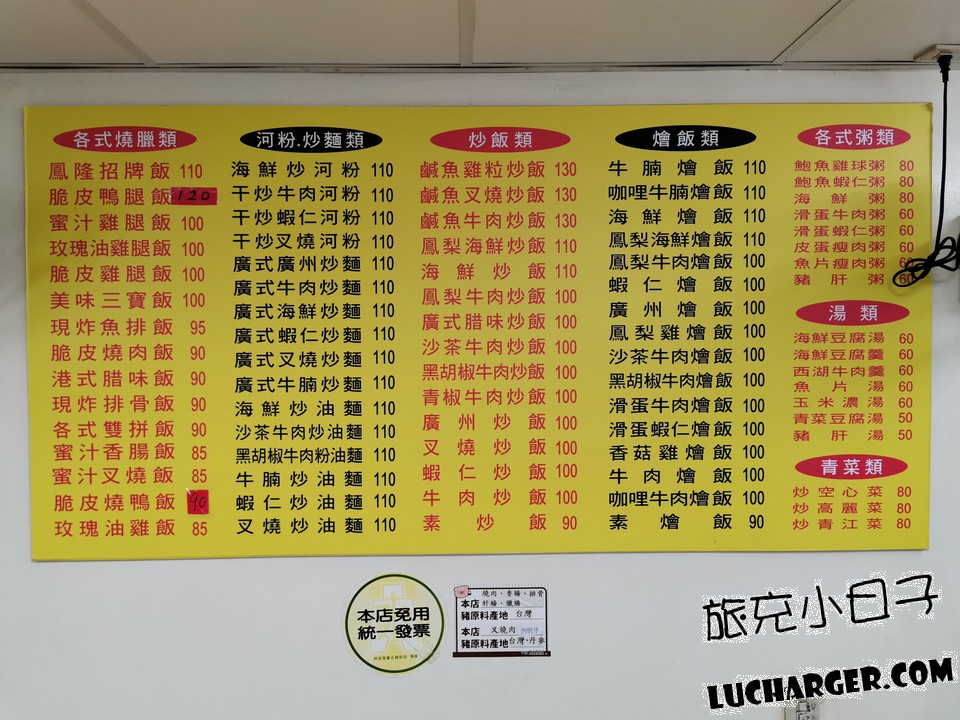 各式燒臘類
鳳隆招牌飯 110
脆皮鴨腿飯 120
蜜汁雞腿飯 100
玫瑰油雞腿飯 100
脆皮雞腿飯 100
美味三寶飯 100
現炸魚排飯 95
脆皮燒肉飯 90
港式腊味飯 90
現炸排骨飯 90
各式雙拼飯 90
蜜汁香腸飯 85
蜜汁叉燒飯 85
脆皮燒鴨飯 90
玫瑰油雞飯 85
河粉.炒麵類
海鮮炒河粉 110
干炒牛肉河粉 110
干炒蝦仁河粉 110
干炒叉燒河粉 110
廣式廣州炒麵 110
廣式牛肉炒麵 110
廣式海鮮炒麵 110
廣式蝦仁炒麵 110
廣式叉燒炒麵 110
廣式牛腩炒麵 110
海鮮炒油麵 110
沙茶牛肉炒油麵 110
黑胡椒牛肉粉油麵 110
牛腩炒油麵 110
蝦仁炒油麵 110
叉燒炒油麵 110
炒飯類
鹹魚雞粒炒飯 130
鹹魚叉燒炒飯 130
鹹魚牛肉炒飯 130
鳳梨海鮮炒飯 110
海鮮炒飯 110
鳳梨牛肉炒飯 100
廣式腊味炒飯 100
沙茶牛肉炒飯 100
黑胡椒牛肉炒飯 100
青椒牛肉炒飯 100
廣州炒飯 100
叉燒炒飯 100
蝦仁炒飯 100
牛肉炒飯 100
素炒飯 90
燴飯類
牛腩燴飯 110
咖哩牛腩燴飯 110
海鮮燴飯 110
鳳梨海鮮燴飯 110
鳳梨牛肉燴飯 100
蝦仁燴飯 100
廣州燴飯 100
鳳梨雞燴飯 100
沙茶牛肉燴飯 100
黑胡椒牛肉燴飯 100
滑蛋牛肉燴飯 100
滑蛋蝦仁燴飯 100
香菇雞燴飯 100
牛肉燴飯 100
咖哩牛肉燴飯 100
素燴飯 90
各式粥類
鮑魚雞球粥 80
鮑魚蝦仁粥 80
海鮮粥 80
滑蛋牛肉粥 60
滑蛋蝦仁粥 60
皮蛋瘦肉粥 60
魚片瘦肉粥 60
豬肝粥 60
湯類
海鮮豆腐湯 60
海鮮豆腐羹 60
西湖牛肉羹 60
魚片湯 60
玉米濃湯 60
青菜豆腐湯 50
豬肝湯 50
青菜類
炒空心菜 80
炒高麗菜 80
炒青江菜 80
本店免用
統一發票
燒肉、香腸、排骨
本店 肝腸、臘腸
豬原料產地 台灣
本店 叉燒肉
豬原料產地 台灣、丹麥
旅充小日子
LUCHARGER.COM